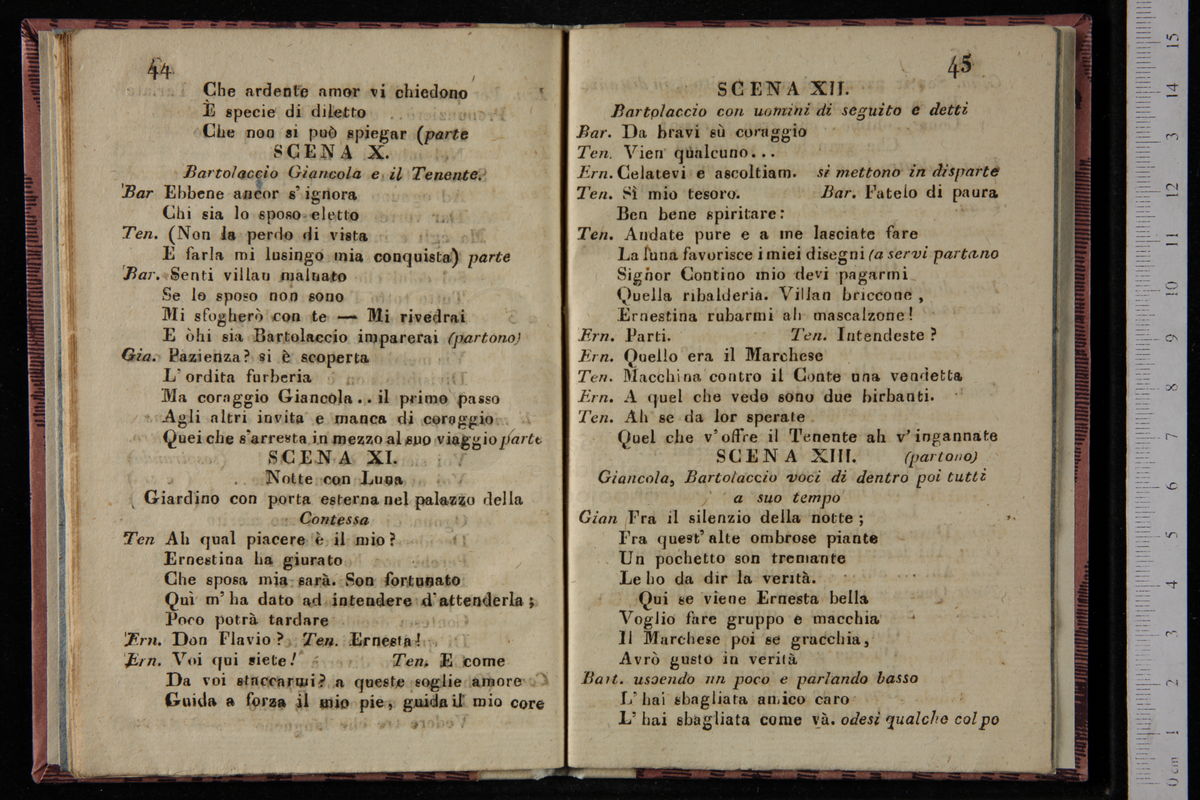 44
Che ardente amor vi chiedono
È specie di diletto
Che non si può spiegar (parte
SCENA X.
Bartolaccio Giancola e il Tenente.
Bar Ebbene ancor s' ignora
Chi sia lo sposo eletto
Ten. (Non la perdo di vista
E farla mi lusingo mia conquista) parte
Bar. Senti villan malnato
Se lo sposo non sono
Mi sfogherò con te — Mi rivedrai
E òhi sia Bartolaccio imparerai (partono)
Gia. Pazienza? si è scoperta
L' ordita furberia
Ma coraggio Giancola . . il primo passo
Agli altri invita e manca di coraggio
Quei che s'arresta in mezzo al suo viaggio parte
SCENA XI.
Notte con Luna
Giardino con porta esterna nel palazzo della
Contessa
Ten Ah qual piacere è il mio?
Ernestina ha giurato
Che sposa mia sarà. Son fortunato
Quì m' ha dato ad intendere d'attenderla;
Poco potrà tardare
Ern. Don Flavio? Ten. Ernesta!
Ern. Voi qui siete! Ten. E come
Da voi staccarmi? a queste soglie amore
Guida a forza il mio pie, guida il mio core
45
SCENA XII.
Bartolaccio con uomini di seguito e detti
Bar. Da bravi sù coraggio
Ten. Vien qualcuno...
Ern. Celatevi e ascoltiam. si mettono in disparte
Ten. Sì mio tesoro. Bar. Fatelo di paura
Ben bene spiritare:
Ten. Andate pure e a me lasciate fare
La luna favorisce i miei disegni (a servi partano
Signor Contino mio devi pagarmi
Quella ribalderia. Villan briccone,
Ernestina rubarmi ah mascalzone!
Ern. Parti. Ten. Intendeste?
Ern. Quello era il Marchese
Ten. Macchina contro il Conte una vendetta
Ern. A quel che vedo sono due birbanti.
Ten. Ah se da lor sperate
Quel che v'offre il Tenente ah v'ingannate
SCENA XIII. (partono)
Giancola, Bartolaccio voci di dentro poi tutti
a suo tempo
Gian Fra il silenzio della notte;
Fra quest' alte ombrose piante
Un pochetto son tremante
Le ho da dir la verità.
Qui se viene Ernesta bella
Voglio fare gruppo e macchia
Il Marchese poi se gracchia,
Avrò gusto in verità
Bart. uscendo un poco e parlando basso
L' hai sbagliata amico caro
L' hai sbagliata come và. odesi qualche colpo